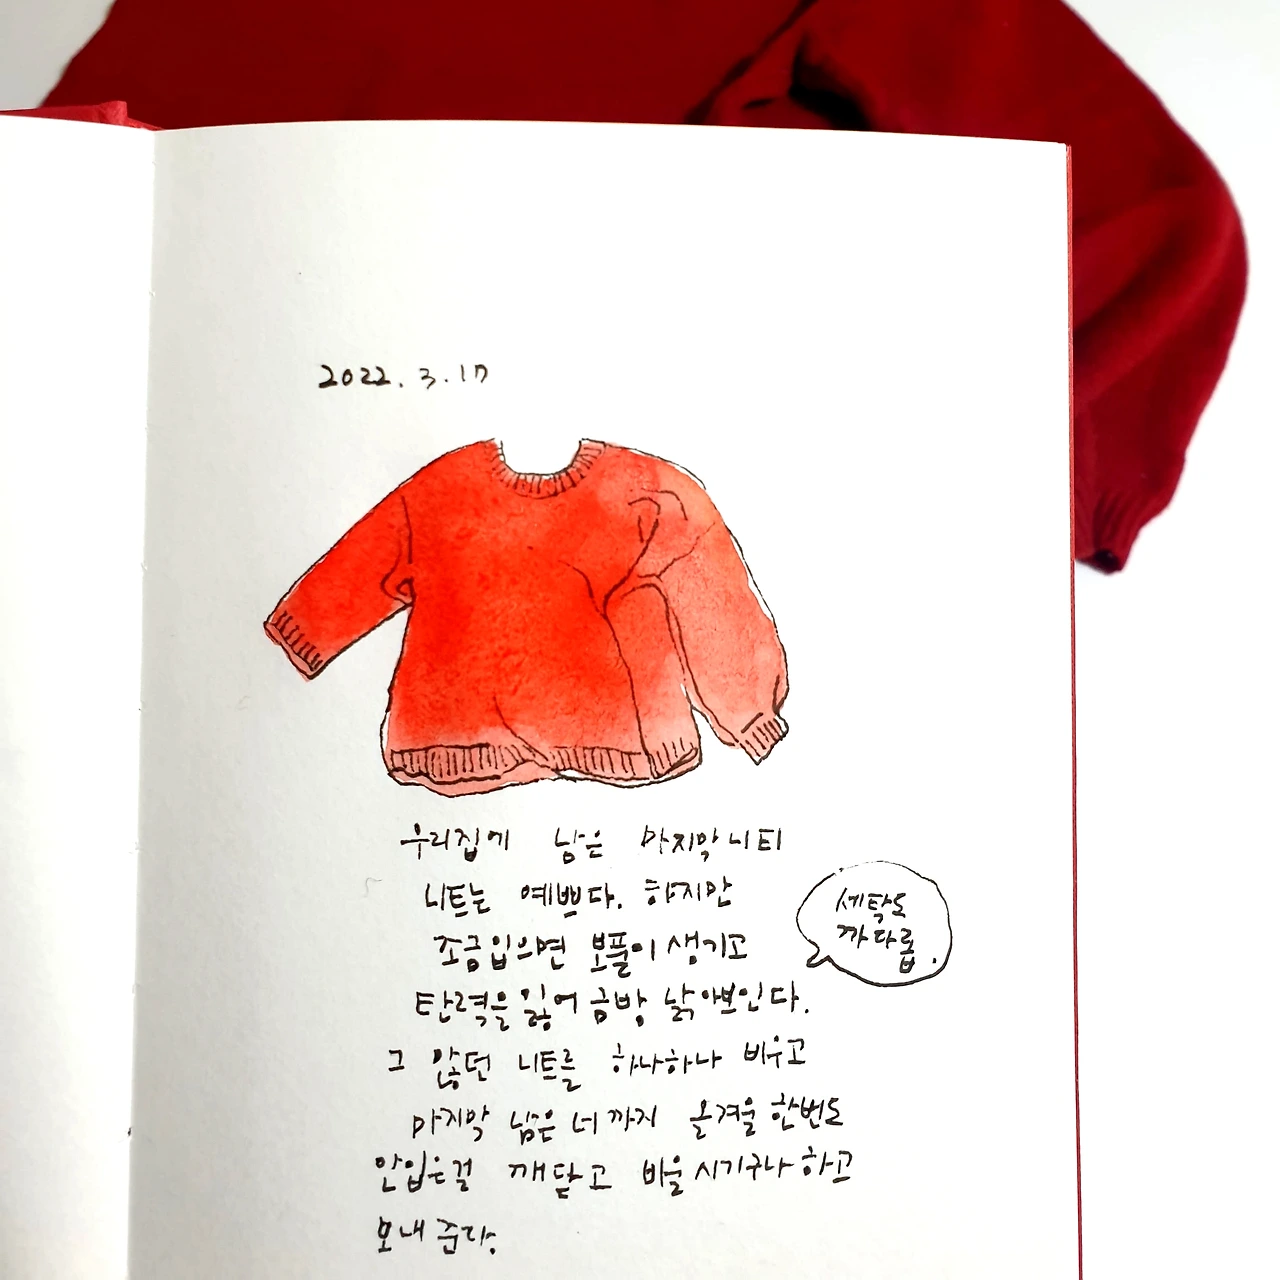 2022. 3. 17
우리집에 남은 마지막 니티
니트는 예쁘다. 하지만
조금입으면 보풀이 생기고
탄력을 잃어 금방 낡아보인다.
세탁도
까다롭.
그 많던 니트를 하나하나 비우고
마지막 남은 너까지 올겨울 한번도
안입은걸 깨닫고 비울 시기구나 하고
보내 준다.